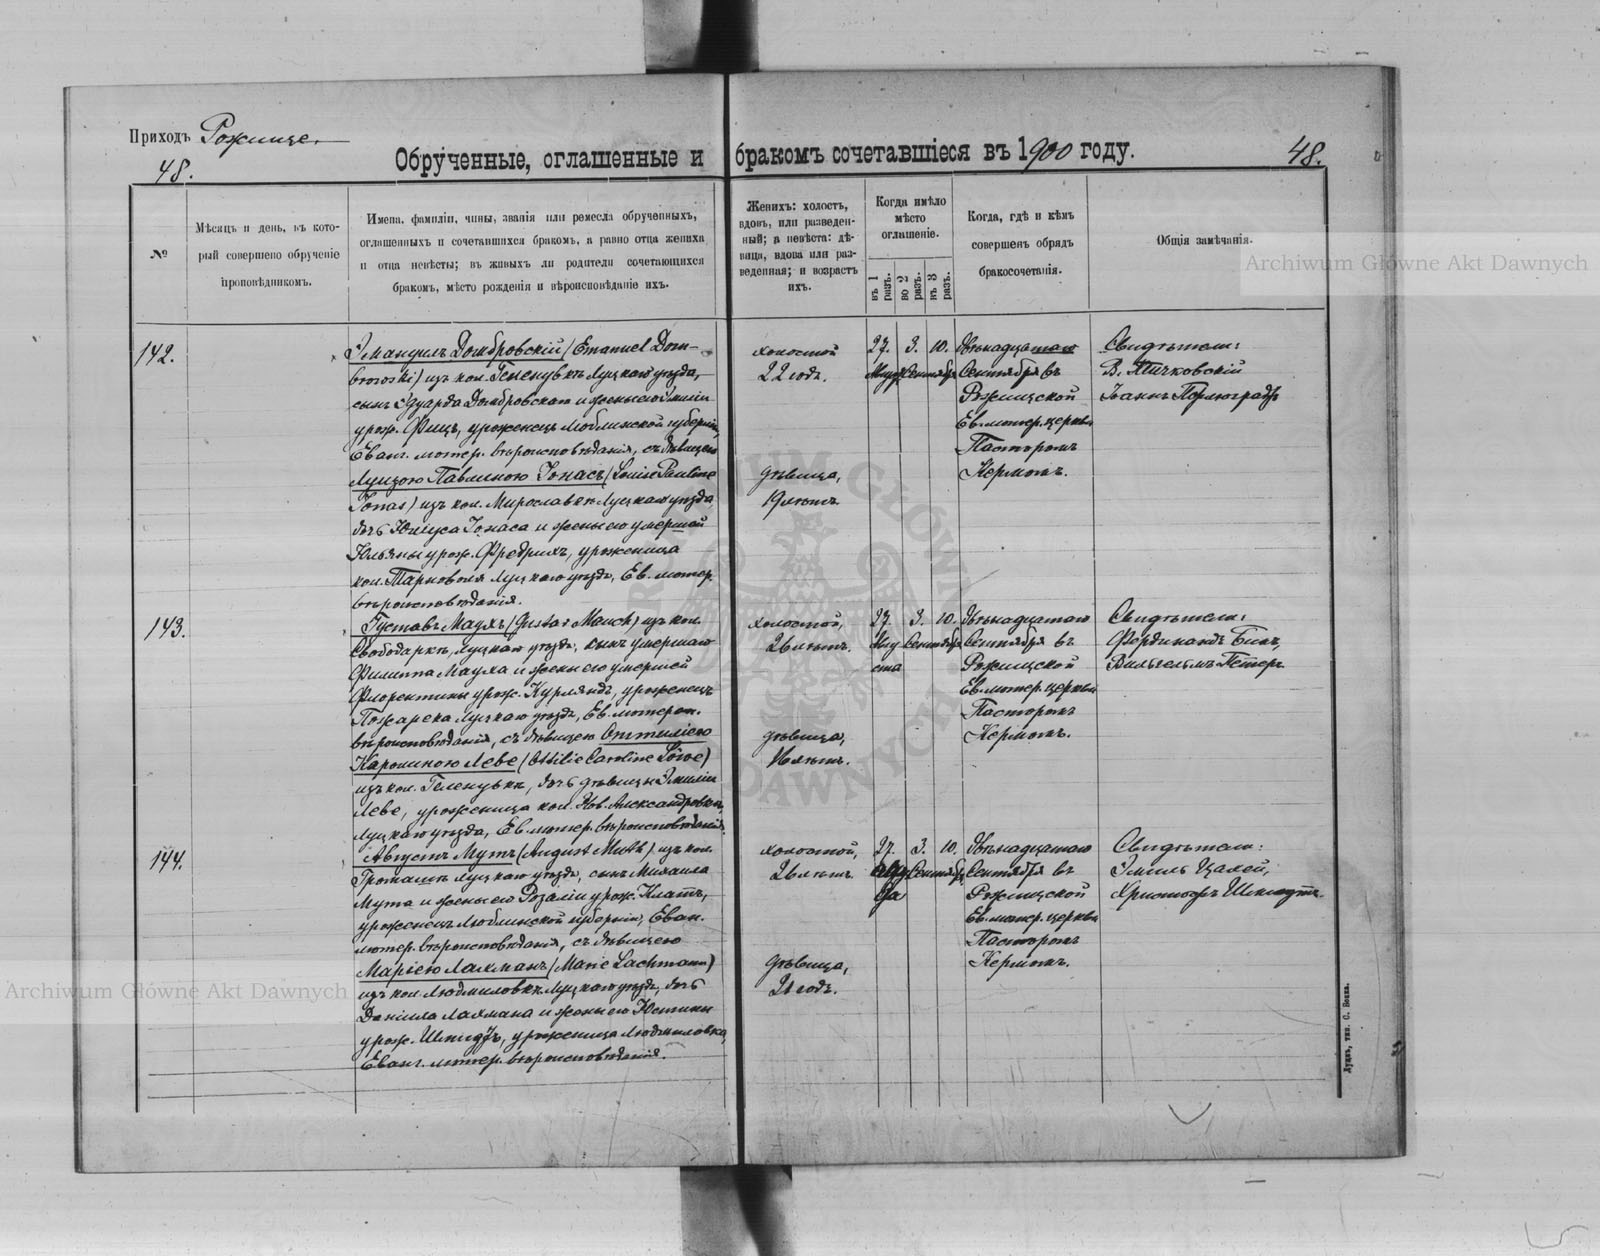 Приходъ Рожище.
Обрученные, оглашенные и бракомъ сочетавшіеся въ 1900 году.
48.
48.
№
Мѣсяцъ и день, въ кото-
рый совершено обрученіе
проповѣдникомъ.
Имена, фамиліи, чины, званія или ремесла обрученныхъ,
оглашенныхъ и сочетавшихся бракомъ, а равно отца жениха
и отца невѣсты; въ живыхъ ли родители сочетающихся
бракомъ, мѣсто рожденія и вѣроисповѣданіе ихъ.
Женихъ: холостъ,
вдовъ, или разведен-
ный; а невѣста: дѣ-
вица, вдова или раз-
веденная; и возрастъ
ихъ.
Когда имѣло
мѣсто
оглашеніе.
въ 1
разъ.
во 2
разъ.
въ 3
разъ.
Когда, гдѣ и кѣмъ
совершенъ обрядъ
бракосочетанія.
Общія замѣчанія.
142.
Эмануилъ Домбровскій (Emanuel Dom-
browski) изъ кол. Геленувкъ Луцкаго уѣзда,
сынъ Эдуарда Домбровскаго и жены его Эмиліи
урож. Фицъ, уроженецъ Люблинской губерніи,
Еванг. лютер. вѣроисповѣданія, съ дѣвицею
Луизою Павлиною Іонасъ (Louise Pauline
Jonas) изъ кол. Мирославкъ Луцкаго уѣзда
дочь Юлиуса Іонаса и жены его умершой
Юльяны урож. Фредрихъ, уроженица
кол. Тарноволя Луцкаго уѣзда, Ев. лютер.
вѣроисповѣданія.
холостой
22 годъ.
дѣвица,
19 лѣтъ.
27. 3. 10.
Сентября
Двѣнадцатаго
Сентября въ
Рожищской
Ев. лютер. церкви
Пасторомъ
Кермомъ.
Свидѣтели:
В. Пичковскій
Іоаннъ
143.
Густавъ Маухъ (Gustav Mauch) изъ кол.
Свободаркъ, Луцкаго уѣзда, сынъ умершаго
Филиппа Мауха и жены его умершей
Флорентины урож. Курляндъ, уроженецъ
Пожарека Луцкаго уѣзда, Ев. лютеран.
вѣроисповѣданія, съ дѣвицею Оттиліею
Каролиною Леве (Ottilie Caroline Löwe)
изъ кол. Геленувкъ, дочь дѣвицы Эмиліи
Леве, уроженица кол. Нов. Александровкъ,
Луцкаго уѣзда, Ев. лютер. вѣроисповѣданія.
холостой,
26 лѣтъ.
дѣвица,
27. 3. 10.
Сентября
Двѣнадцатаго
Сентября въ
Рожищской
Ев. лютер. церкви
Пасторомъ
Кермомъ.
Свидѣтели:
Фердинандъ Бикъ,
Вильгельмъ Петеръ
144.
Августъ Мутъ (August Muth) изъ кол.
Луцкаго уѣзда, сынъ Михаила
Мута и жены его Розаліи урож. Клаттъ,
уроженецъ Люблинской губерніи, Еван.
лютер. вѣроисповѣданія, съ дѣвицею
Маріею Лахманъ (Marie Lachmann)
изъ кол. Людмиловкъ Луцкаго уѣзда, дочь
Даніила Лахмана и жены его Юстины
урож. Шмидтъ, уроженица Людмиловка,
Еванг. лютер. вѣроисповѣданія.
холостой,
26 лѣтъ
дѣвица,
21 годъ.
27. 3. 10.
Сентября
Двѣнадцатаго
Сентября въ
Рожищской
Ев. лютер. церкви
Пасторомъ
Кермомъ.
Свидѣтели:
Эмиль Цалей,
Христофъ Шмидтъ.
Луцкъ, тип. С. Бокка.
Archiwum Główne Akt Dawnych
Archiwum Główne Akt Dawnych